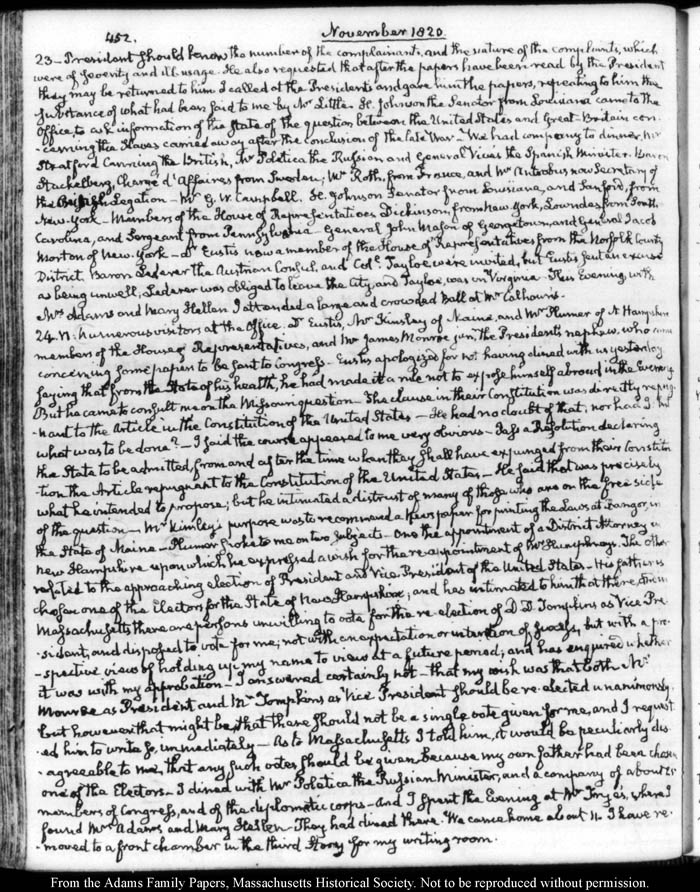 452. November 1820.
23 - President should know the number of the complainants, and the nature of the complaints, which
were of severity and ill usage. He also requested that after the papers have been read by the President
they may be returned to him. I called at the Presidents and gave him the papers, repeating to him the
substance of what had been said to me by Mr Little. H. Johnson the Senator from Louisiana came to the
Office, to ask information of the state of the question between the United States and Great-Britain con-
-cerning the Slaves carried away after the conclusion of the late War - We had company to dinner, Mr
Stratford Canning the British, Mr Poletica the Russian and General Vives the Spanish Minister. Baron
Stackelberg, Chargé d'Affaires from Sweden, Mr Roth, from France, and Mr Antrobus now Secretary of
the British Legation - Mr G. W. Campbell. H. Johnson Senator from Louisiana, and Sanford, from
New-York - Members of the House of Representatives Dickinson, from New York, Lowndes from South
Carolina, and Sergeant from Pennsylvania - General John Mason of Georgetown, and General Jacob
Morton of New-York - Dr Eustis now a member of the House of Representatives from the Norfolk County
District, Baron Lederer the Austrian Consul, and Col. Tayloe were invited, but Eustis sent an excuse
as being unwell, Lederer was obliged to leave the City, and Tayloe, was in Virginia. This Evening, with
Mrs Adams and Mary Hellen I attended a large and crowded Ball at Mr Calhoun's.
24. VI. Numerous visitors at the Office. Dr Eustis, Mr Kinsley of Maine, and Mr Plumer of N. Hampshire
members of the House of Representatives, and Mr James Monroe junr. the Presidents nephew, who came
concerning some papers to be sent to Congress - Eustis apologized for not having dined with us yesterday
saying that from the State of his health, he had made it a rule not to expose himself abroad in the Evening
But he came to consult me on the Missouri question - The clause in their Constitution was directly repug-
-nant to the Article in the Constitution of the United States - He had no doubt of that; nor had I. but
what was to be done? - I said the course appeared to me very obvious - Pass a Resolution declaring
the State to be admitted, from and after the time when they shall have expunged from their Constitu-
-tion the Article repugnant to the Constitution of the United States - He said that was precisely
what he intended to propose; but he intimated a distrust of many of those who are on the free side
of the question - Mr Kinsley's purpose was to recommend a Newspaper for printing the Laws at Bangor, in
the State of Maine - Plumer spoke to me on two subjects - One the appointment of a District Attorney in
New Hampshire upon which he expressed a wish for the re-appointment of Mr Humphreys. The other
related to the approaching election of President and Vice-President of the United States - His father is
chosen one of the Electors for the State of New Hampshire; and has intimated to him that there, and in
Massachusetts there are persons unwilling to vote for the re-election of D. D. Tompkins as Vice-Pre-
-sident; and disposed to vote for me; not with an expectation or intention of success, but with a pro-
-spective view of holding up my name to view at a future period; and has enquired whether
it was with my approbation - I answered certainly not - that my wish was that both Mr
Monroe as President and Mr Tompkins as Vice President should be re-elected unanimously.
but however that might be, that there should not be a single vote given for me, and I request
ed him to write so, immediately - As to Massachusetts I told him, it would be peculiarly dis-
-agreeable to me, that any such votes should be given because my own father had been chosen
one of the Electors - I dined with Mr Poletica the Russian Minister, and a company of about 25
members of Congress, and of the diplomatic corps - and I spent the Evening at Mr Frye's, where I
found Mrs Adams and Mary Hellen - They had dined there. We came home about 11. I have re-
-moved to a front chamber in the third Story for my writing room.
From the Adams Family Papers, Massachusetts Historical Society. Not to be reproduced without permission.